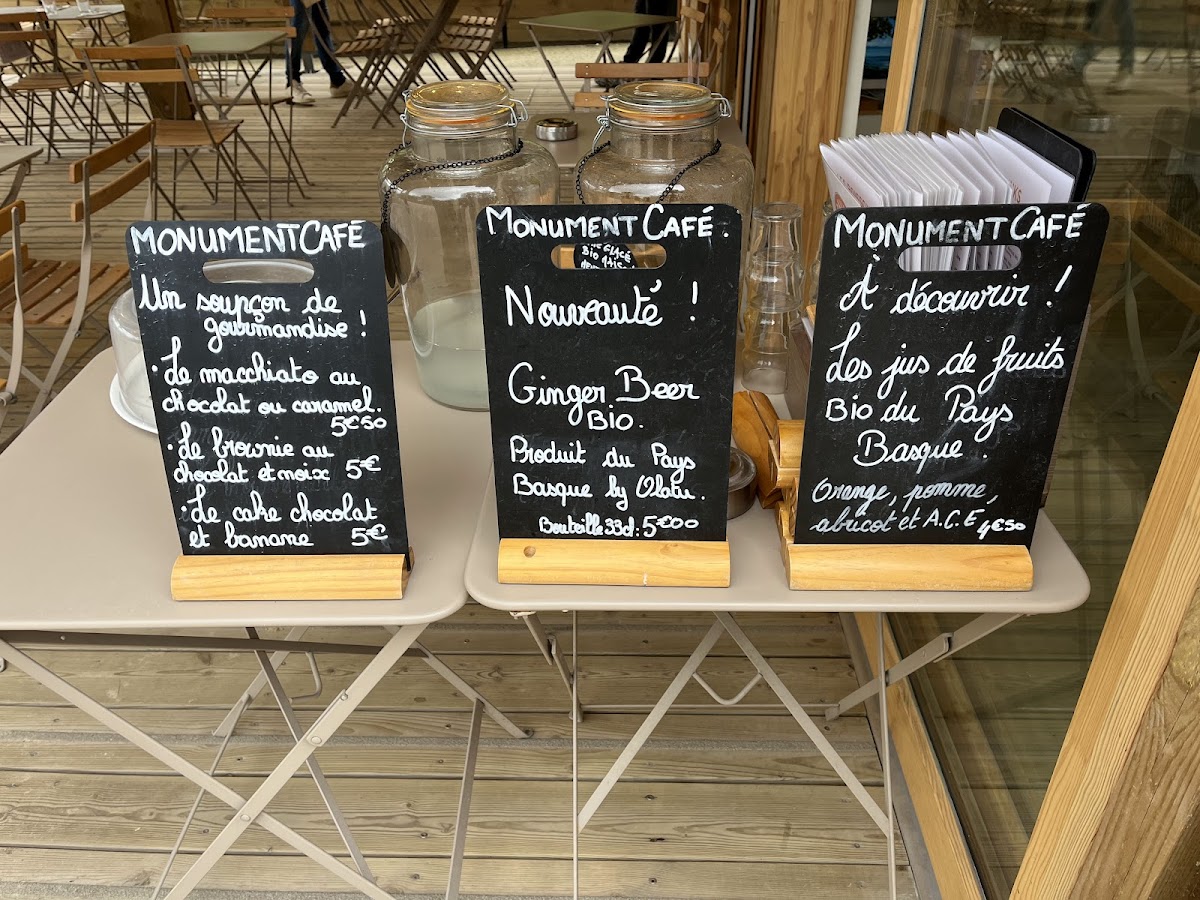 MONUMENT CAFÉ
Un soupçon de
gourmandise !
• Le macchiato au
chocolat ou caramel.
5€50
• Le brownie au
chocolat et noix 5€
• Le cake chocolat
et banane 5€
MONUMENT CAFÉ.
Nouveauté !
Ginger Beer
Bio.
Produit du Pays
Basque by Olatu.
Bouteille 33cl : 5€00
MONUMENT CAFÉ
À découvrir !
Les jus de fruits
Bio du Pays
Basque.
Orange, pomme,
abricot et A.C.E 4€50